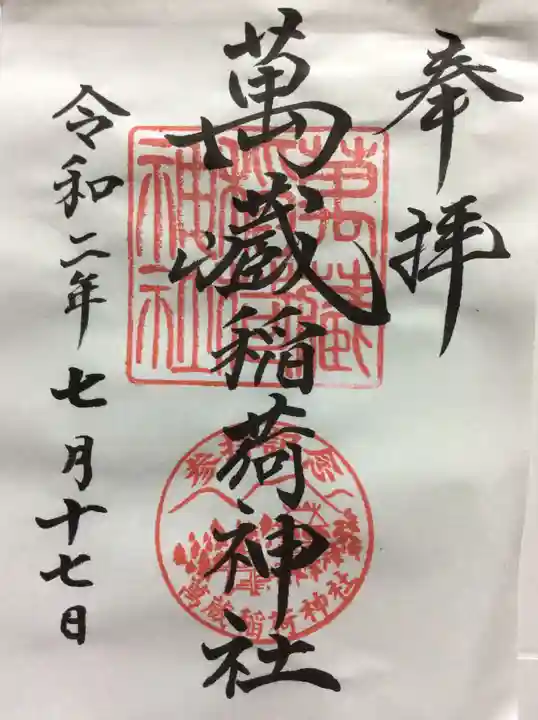 奉拝
萬蔵稲荷神社
令和二年七月十七日
萬蔵
稲荷
神社
参拝記念
萬蔵稲荷神社